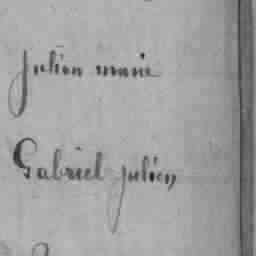 julien marie
Gabriel julien